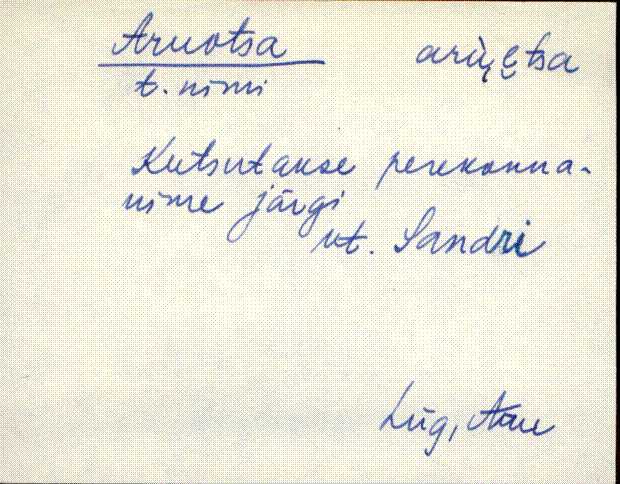 Aruotsa ariu̯ẹtsa
t. nimi
Kutsutakse perekonna-
nime järgi
vt. Sandri
Lüg, Aru